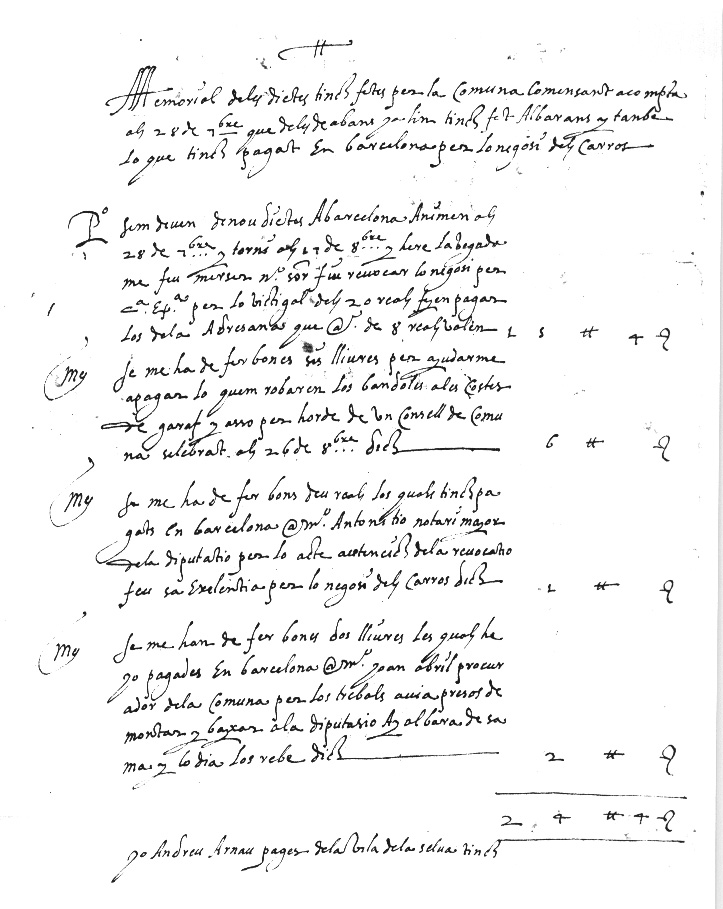 Memorial dels dictes tinch fetes per la Comuna Comensant acompta
als 28 de 7bre que dels deabans ja lin tinch fet Albarans y tambe
lo que tinch pagat En barcelona per lo negosi dels Carros
Po sem deuen denou dictes Abarcelona Aniui als
28 de 7bre y torni als 17 de 8bre y here la vegada
me feu merser nº sor feu revocar lo negosi per
sa Exa per lo victigal dels 20 reals fejen pagar
los dela Adresana que @r de 8 reals valen 1 5 # 4 ₰
my se me ha de fer bones sis lliures per ajudarme
apagar lo quem robaren los bandoles ales Costes
de garaf y asso per horde de vn Consell de Comu
na selebrat als 26 de 8bre dich 6 # ₰
my se me ha de fer bons deu reals los quals tinch pa
gats En barcelona @ mº Antoni tio notari major
dela diputatio per lo acte autentich dela revocatio
feu sa Exelentia per lo negosi dels Carros dich 1 # ₰
my se me han de fer bones dos lliures les quals he
yo pagades En barcelona @ mº joan abril procur
ador dela Comuna per los trebals auia presos de
montar y baxar ala diputasio Ay albara de sa
ma y lo dia los rebe dich 2 # ₰
2 4 # 4 ₰
yo Andreu Arnau pages dela vila dela selua tinch